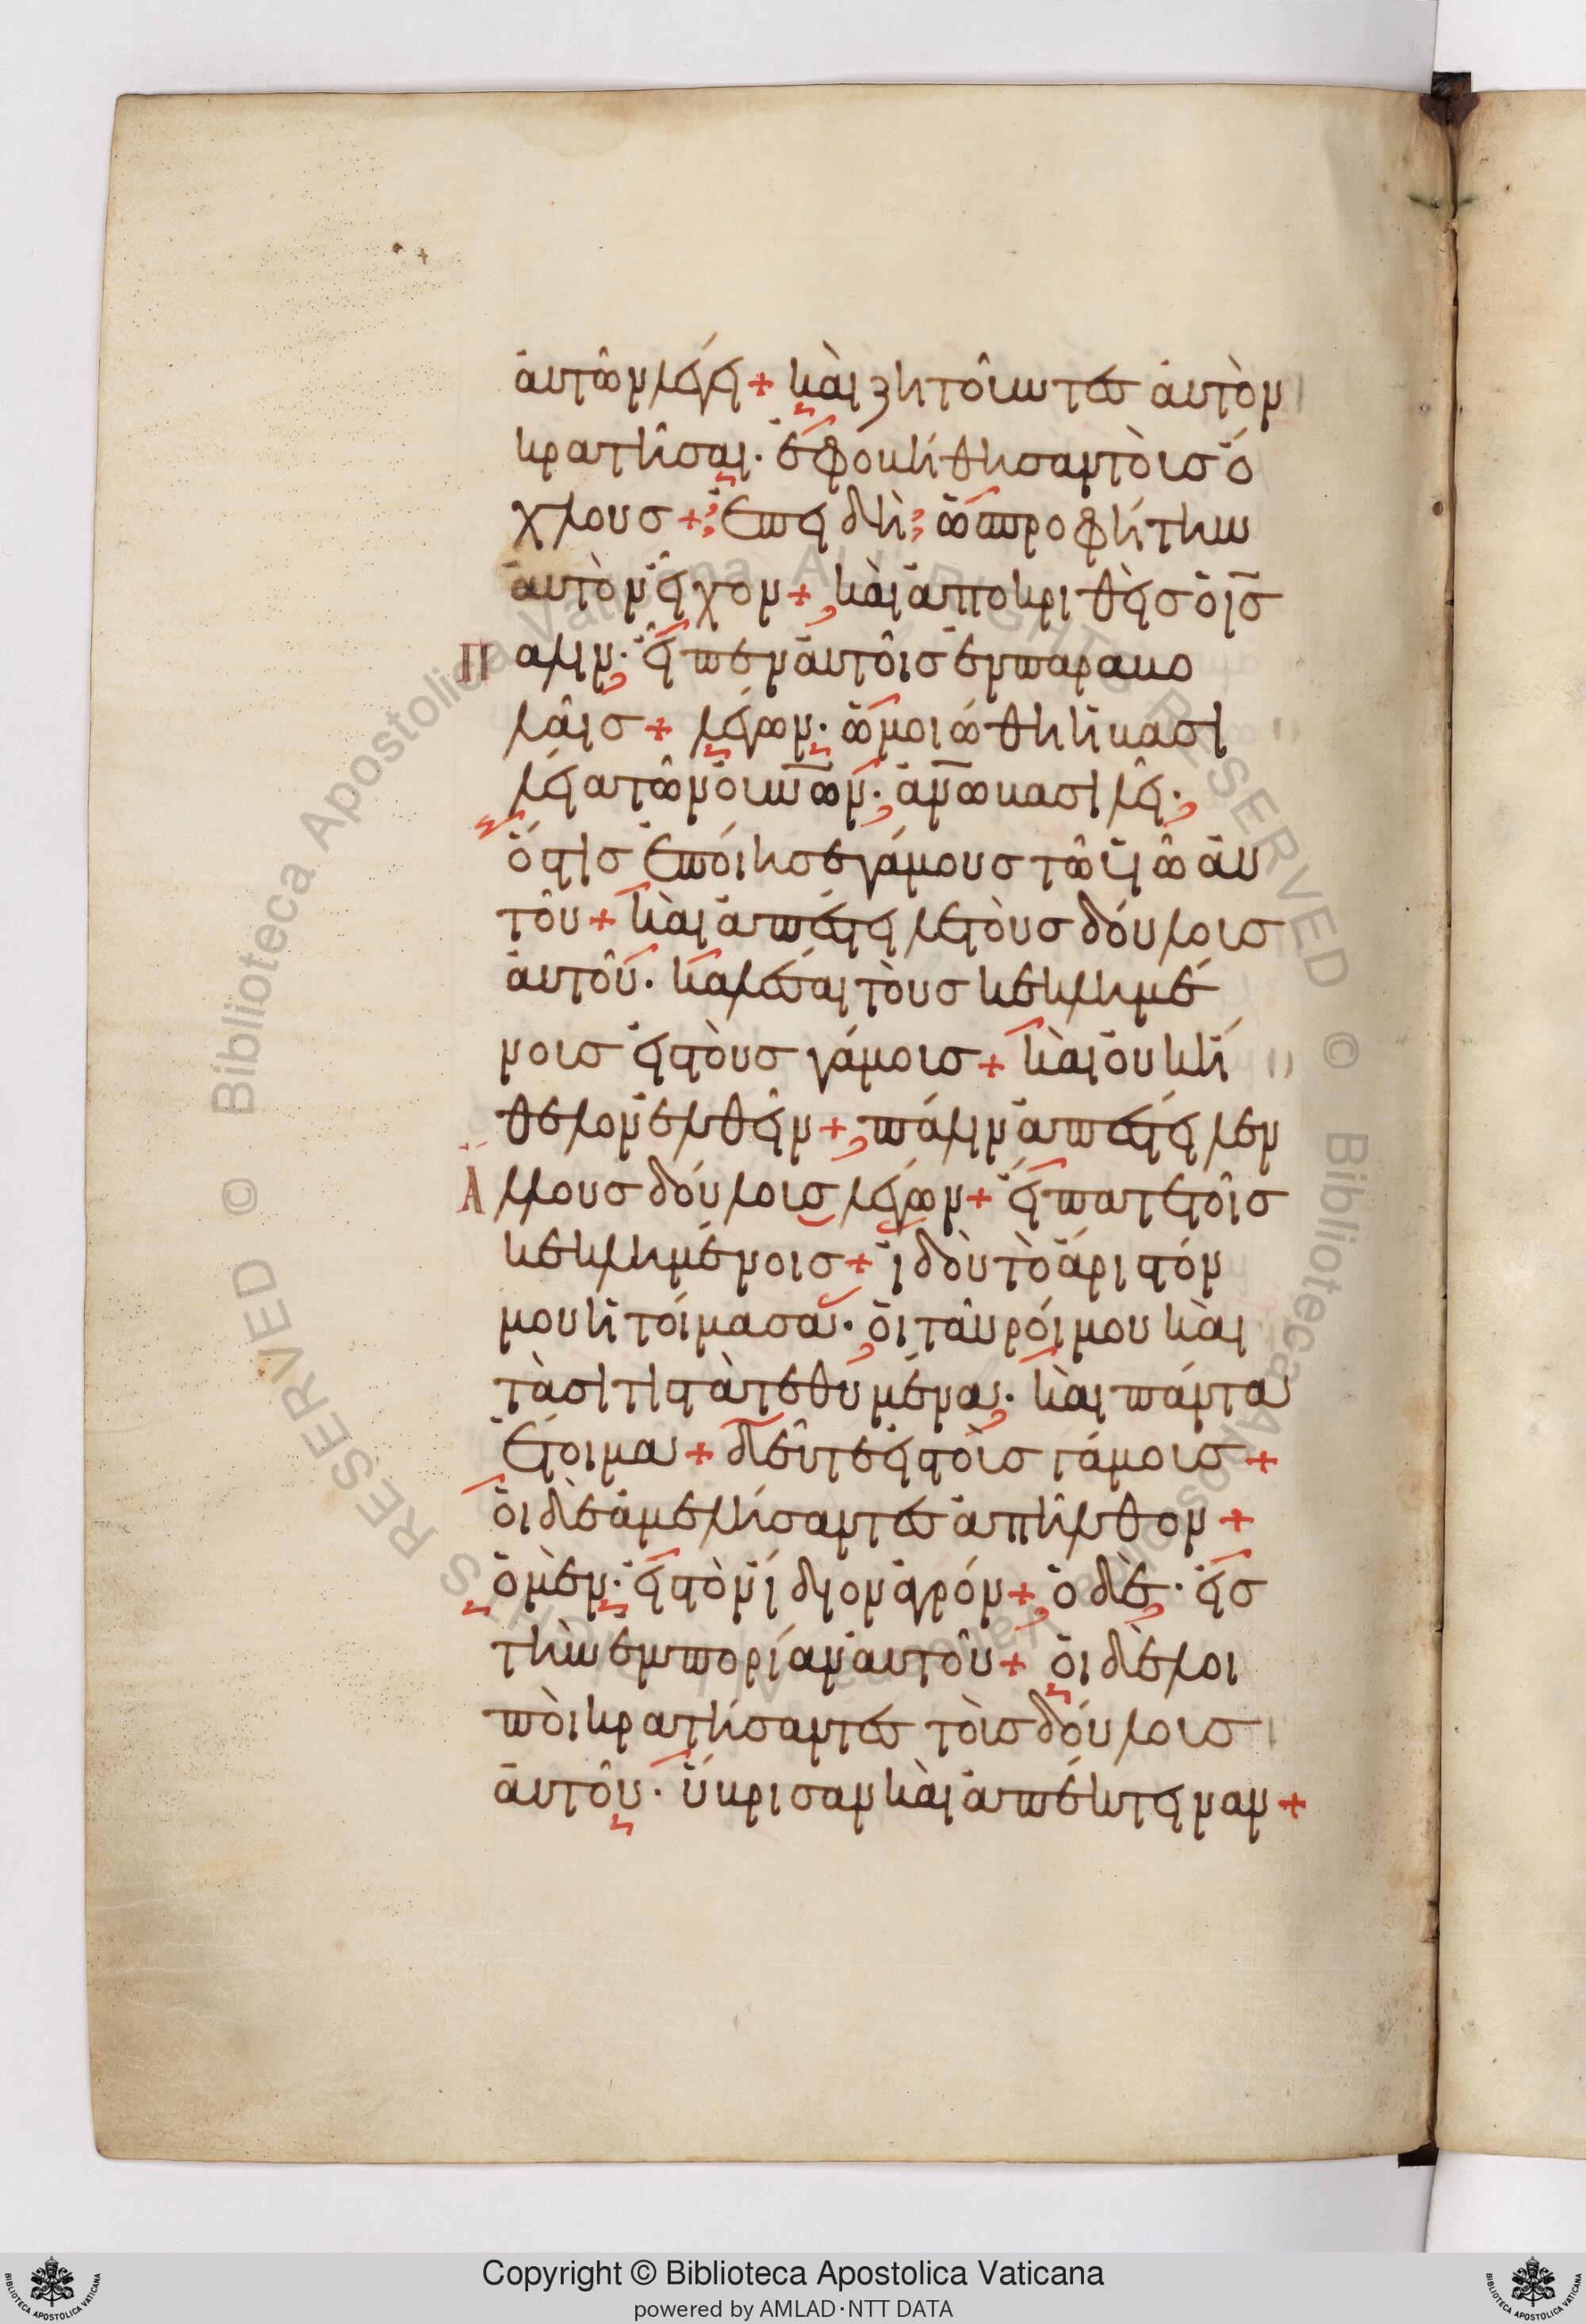 αὐτῶν λέγει + καὶ ζητοῦντες αὐτὸν
κρατῆσαι · ἐφοβήθησαν τοὺς ὄ
χλους + ἐπειδὴ ὡς προφήτην
αὐτὸν εἶχον + καὶ ἀποκριθεὶς ὁ ις
πάλιν · εἶπεν αὐτοῖς ἐν παραβο
λαῖς + λέγων · ὡμοιώθη ἡ βασι
λεία τῶν οὐνων · ἀνω βασιλεῖ ·
ὅστις ἐποίησε γάμους τῶ υἱῶ αὐ
τοῦ + καὶ ἀπέστειλε τοὺς δούλους
αὐτοῦ · καλέσαι τοὺς κεκλημέ
νους εἰς τοὺς γάμους + καὶ οὐκ ἤ
θελον ἐλθεῖν + πάλιν ἀπέστειλεν
ἄλλους δούλους λέγων + εἴπατε τοῖς
κεκλημένοις + ἰδοὺ τὸ ἄριστόν
μου ἡτοίμασα · οἱ ταῦροί μου καὶ
τὰ σιτιστὰ τεθυμένα · καὶ πάντα
ἕτοιμα + δεῦτε εἰς τοὺς γάμους +
οἱ δὲ ἀμελήσαντες ἀπῆλθον +
ὁ μὲν · εἰς τὸν ἴδιον ἀγρόν + ὁ δὲ · εἰς
τὴν ἐμπορίαν αὐτοῦ + οἱ δὲ λοι
ποὶ κρατήσαντες τοὺς δούλους
αὐτοῦ · ὕβρισαν καὶ ἀπέκτειναν +
Copyright © Biblioteca Apostolica Vaticana
powered by AMLAD·NTT DATA